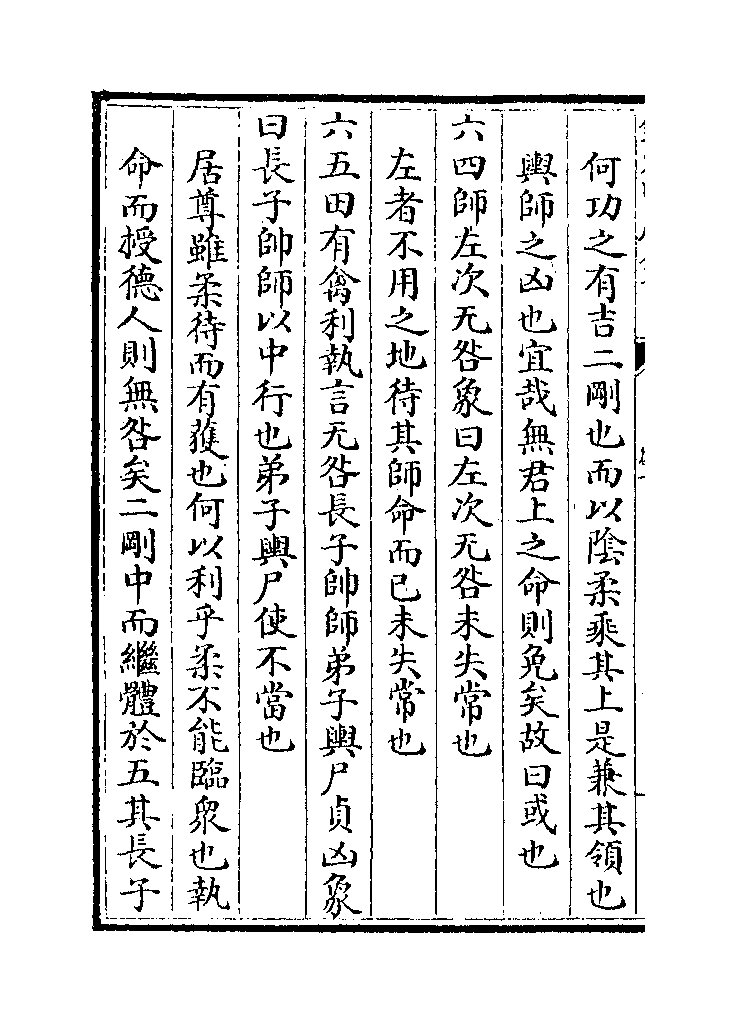 何功之有吉二剛也而以陰柔乘其上是兼其領也
輿師之凶也宜哉無君上之命則免矣故曰或也
六四師左次无咎象曰左次无咎未失常也
左者不用之地待其師命而已未失常也
六五田有禽利執言无咎長子帥師弟子輿尸貞凶象
曰長子帥師以中行也弟子輿尸使不當也
居尊雖柔待而有獲也何以利乎柔不能臨衆也執
命而授德人則無咎矣二剛中而繼體於五其長子